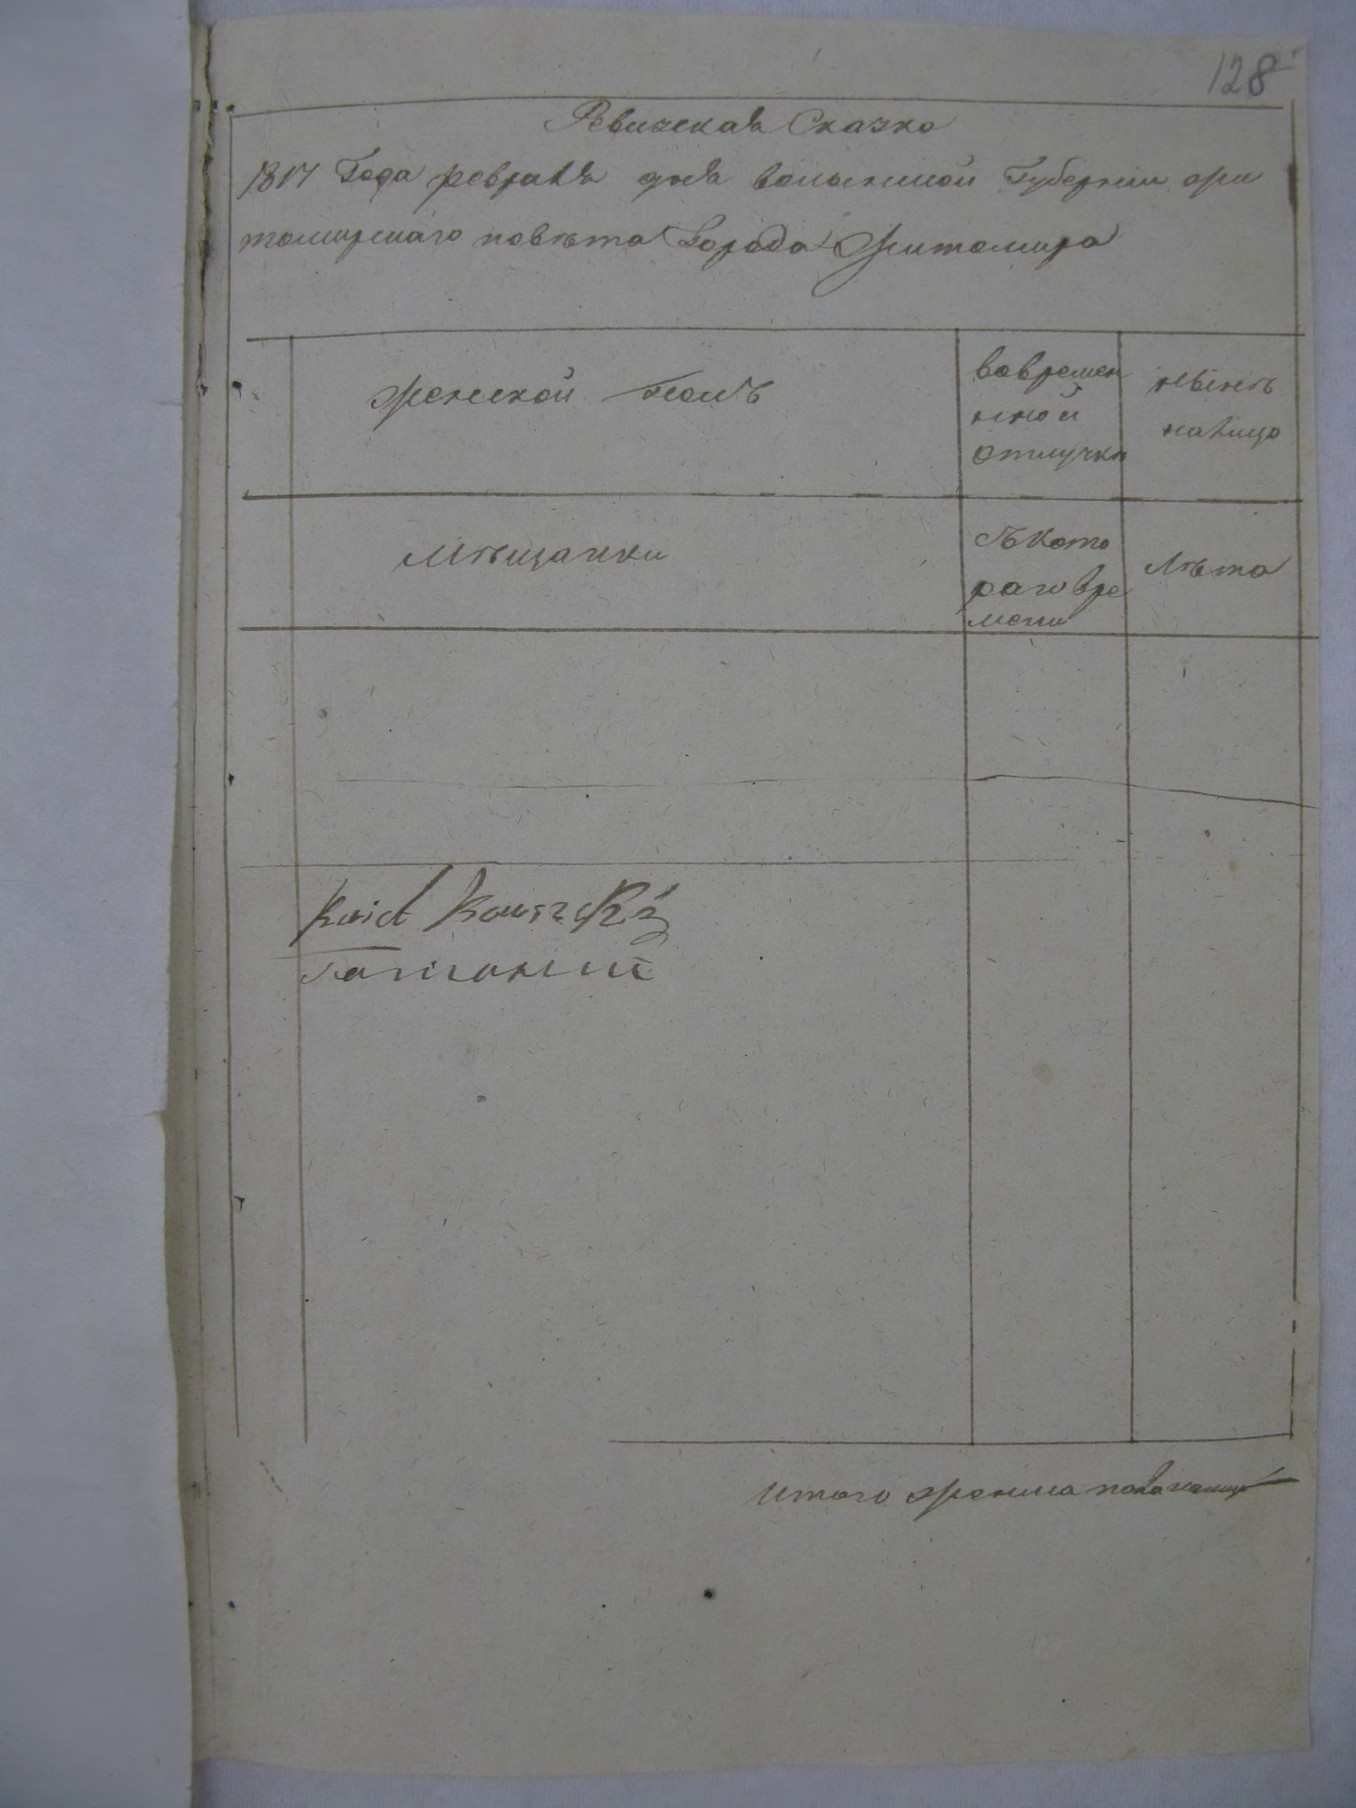 128
Ревизская Сказка
1817 Года февраля дня волынской Губернии жи
томирскаго повѣта Города Житомира
женской полъ
вовремен
ной
отлучки
нынѣ
налицо
Мѣщанки
Съ кото
раго вре
мени
Лѣта
итого женска пола налицо